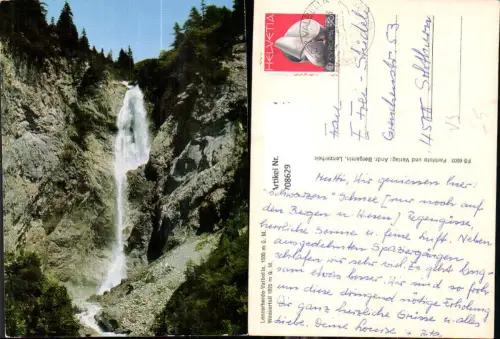 HELVETIA
Frau
I. Frei-Stridel
4500 Solothurn
Artikel Nr.
708629
PS 4602 Farbfoto und Verlag: Andr. Bergamin, Lenzerheide
Lenzerheide-Valbella, 1500 m ü. M.
Wasserfall 1625 m ü. M.
Wir geniessen hier:
"schwarzen" Schnee (nur noch auf
den Bergen u Wiesen) Regengüsse,
herrliche Sonne u. feine Luft. Neben
ausgedehnten Spaziergängen
schlafen wir sehr viel. Es geht lang-
sam etwas besser. Wir sind so froh
um diese dringend nötige Erholung
Dir ganz herzliche Grüsse u. alles
Liebe. Deine